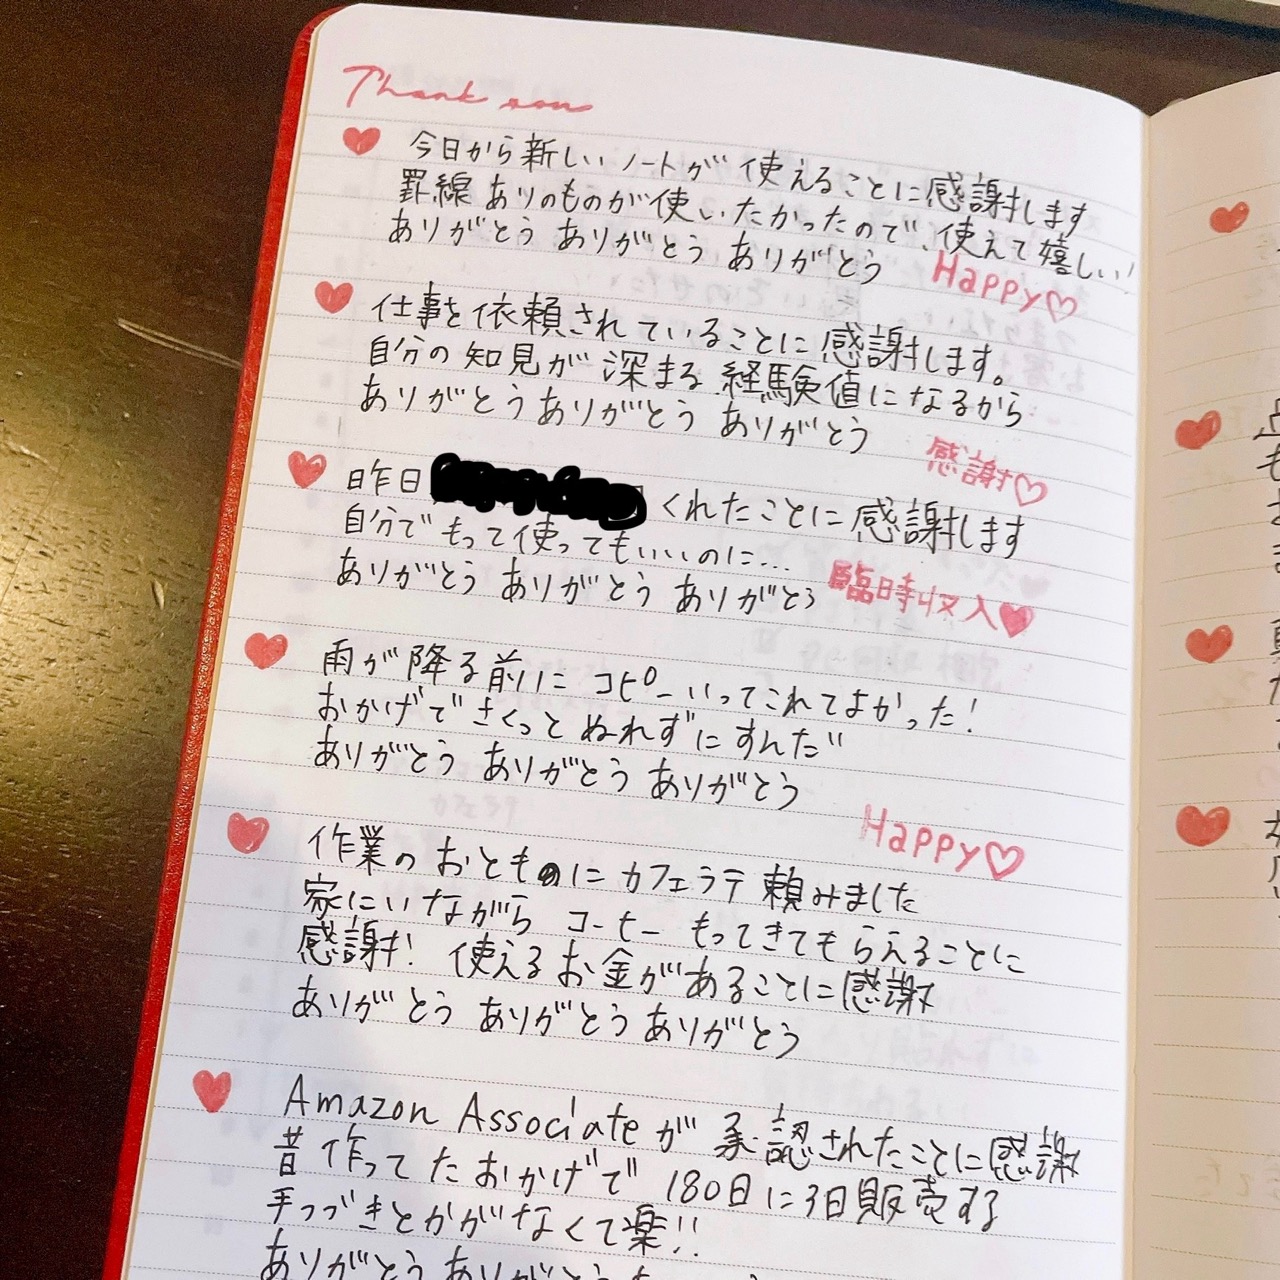 Thank you
今日から新しいノートが使えることに感謝します
罫線ありのものが使いたかったので、使えて嬉しい!
ありがとう ありがとう ありがとう
Happy♡
仕事を依頼されていることに感謝します。
自分の知見が深まる経験値になるから
ありがとう ありがとう ありがとう
感謝♡
昨日 くれたことに感謝します
自分でもって使ってもいいのに…
ありがとう ありがとう ありがとう
臨時収入♥
雨が降る前にコピーいってこれてよかった!
おかげでさくっとぬれずにすんだ
ありがとう ありがとう ありがとう
Happy♡
作業のおとものにカフェラテ頼みました
家にいながらコーヒーもってきてもらえることに
感謝! 使えるお金があることに感謝
ありがとう ありがとう ありがとう
Amazon Associateが承認されたことに感謝
昔作ってたおかげで180日に3日販売する
手つづきとかがなくて楽!!
ありがとう ありがとう